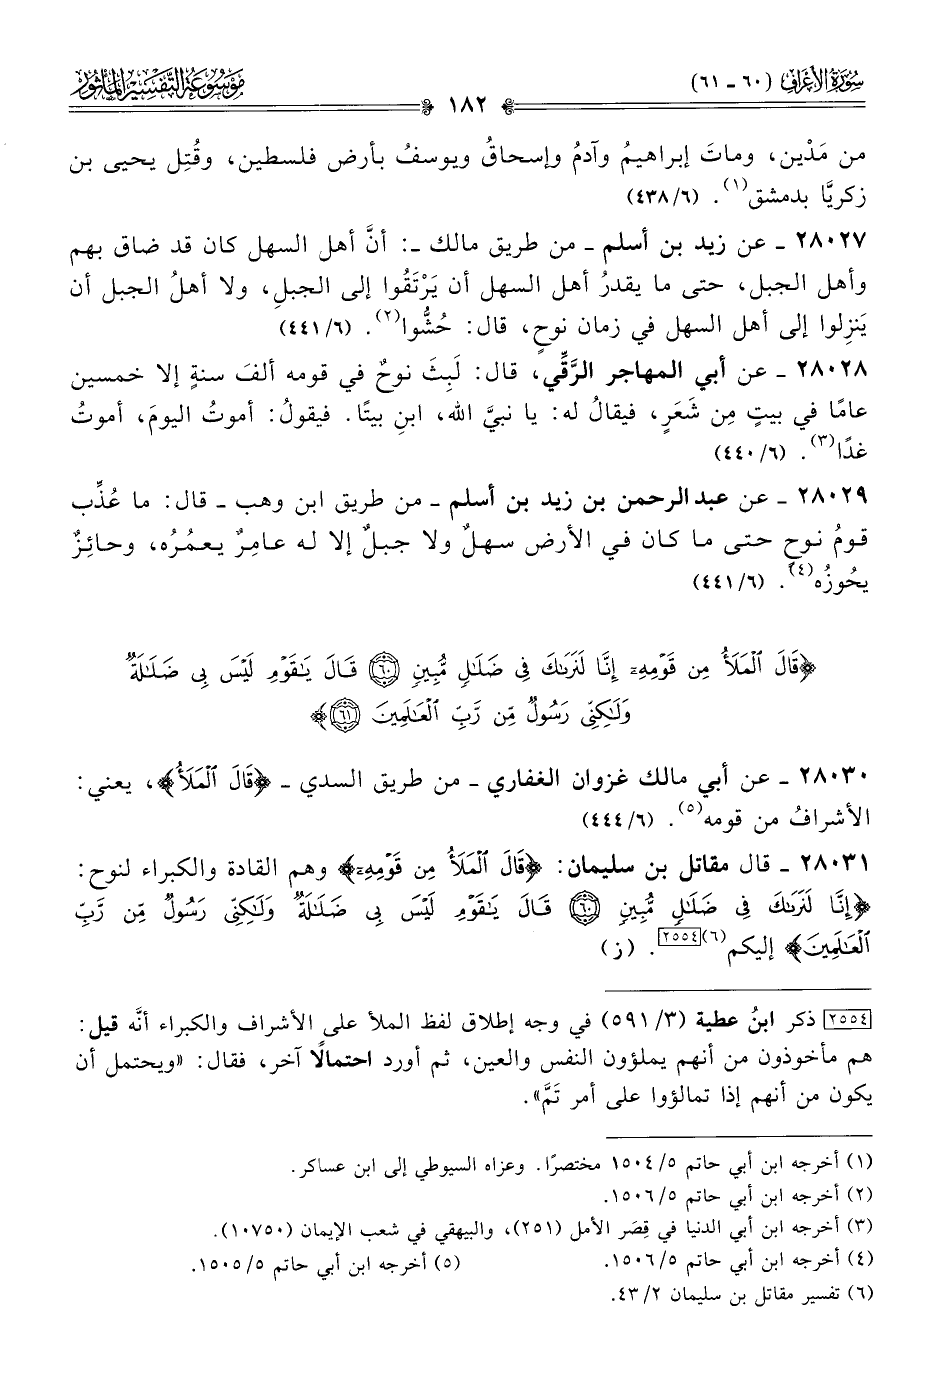 سورة الأعراف (٦٠ ـ ٦١)
١٨٢
موسوعة التفسير المأثور
من مَدْين، وماتَ إبراهيمُ وآدمُ وإسحاقُ ويوسفُ بأرض فلسطين، وقُتِل يحيى بن
زكريَّا بدمشق(١). (٤٣٨/٦)
٢٨٠٢٧ ـ عن زيد بن أسلم ـ من طريق مالك ـ: أنَّ أهل السهل كان قد ضاق بهم
وأهل الجبل، حتى ما يقدرُ أهل السهل أن يَرْتَقُوا إلى الجبلِ، ولا أهلُ الجبل أن
يَنزِلوا إلى أهل السهل في زمان نوحٍ، قال: حُشُّوا(٢). (٤٤١/٦)
٢٨٠٢٨ ـ عن أبي المهاجر الرَّقِّي، قال: لَبِثَ نوحٌ في قومه ألفَ سنةٍ إلا خمسين
عامًا في بيتٍ مِن شَعَرٍ، فيقالُ له: يا نبيَّ الله، ابنِ بيتًا. فيقولُ: أموتُ اليومَ، أموتُ
غدًا(٣). (٤٤٠/٦)
٢٨٠٢٩ ـ عن عبد الرحمن بن زيد بن أسلم ـ من طريق ابن وهب ـ قال: ما عُذِّب
قومُ نوحٍ حتى ما كان في الأرض سهلٌ ولا جبلٌ إلا له عامِرٌ يعمُرُه، وحائِزٌ
يحُوزُه(٤). (٤٤١/٦)
﴿قَالَ ٱلْمَلَأُ مِن قَوْمِهِۦٓ إِنَّا لَنَرَىٰكَ فِى ضَلَٰلٍ مُّبِينٍ ٦٠ قَالَ يَٰقَوْمِ لَيْسَ بِى ضَلَٰلَةٌ
وَلَٰكِنِّى رَسُولٌ مِّن رَّبِّ ٱلْعَٰلَمِينَ ٦١﴾
٢٨٠٣٠ ـ عن أبي مالك غزوان الغفاري ـ من طريق السدي ـ ﴿قَالَ ٱلْمَلَأُ﴾، يعني:
الأشرافُ من قومه(٥). (٤٤٤/٦)
٢٨٠٣١ ـ قال مقاتل بن سليمان: ﴿قَالَ ٱلْمَلَأُ مِن قَوْمِهِۦٓ﴾ وهم القادة والكبراء لنوح:
﴿إِنَّا لَنَرَىٰكَ فِى ضَلَٰلٍ مُّبِينٍ ٦٠ قَالَ يَٰقَوْمِ لَيْسَ بِى ضَلَٰلَةٌ وَلَٰكِنِّى رَسُولٌ مِّن رَّبِّ
ٱلْعَٰلَمِينَ﴾ إليكم(٦)[٢٥٥٤]. (ز)
[٢٥٥٤] ذكر ابنُ عطية (٥٩١/٣) في وجه إطلاق لفظ الملأ على الأشراف والكبراء أنَّه قيل:
هم مأخوذون من أنهم يملؤون النفس والعين، ثم أورد احتمالًا آخر، فقال: «ويحتمل أن
يكون من أنهم إذا تمالؤوا على أمر تَمَّ».
(١) أخرجه ابن أبي حاتم ١٥٠٤/٥ مختصرًا. وعزاه السيوطي إلى ابن عساكر.
(٢) أخرجه ابن أبي حاتم ١٥٠٦/٥.
(٣) أخرجه ابن أبي الدنيا في قِصَر الأمل (٢٥١)، والبيهقي في شعب الإيمان (١٠٧٥٠).
(٤) أخرجه ابن أبي حاتم ١٥٠٦/٥. (٥) أخرجه ابن أبي حاتم ١٥٠٥/٥.
(٦) تفسير مقاتل بن سليمان ٤٣/٢.